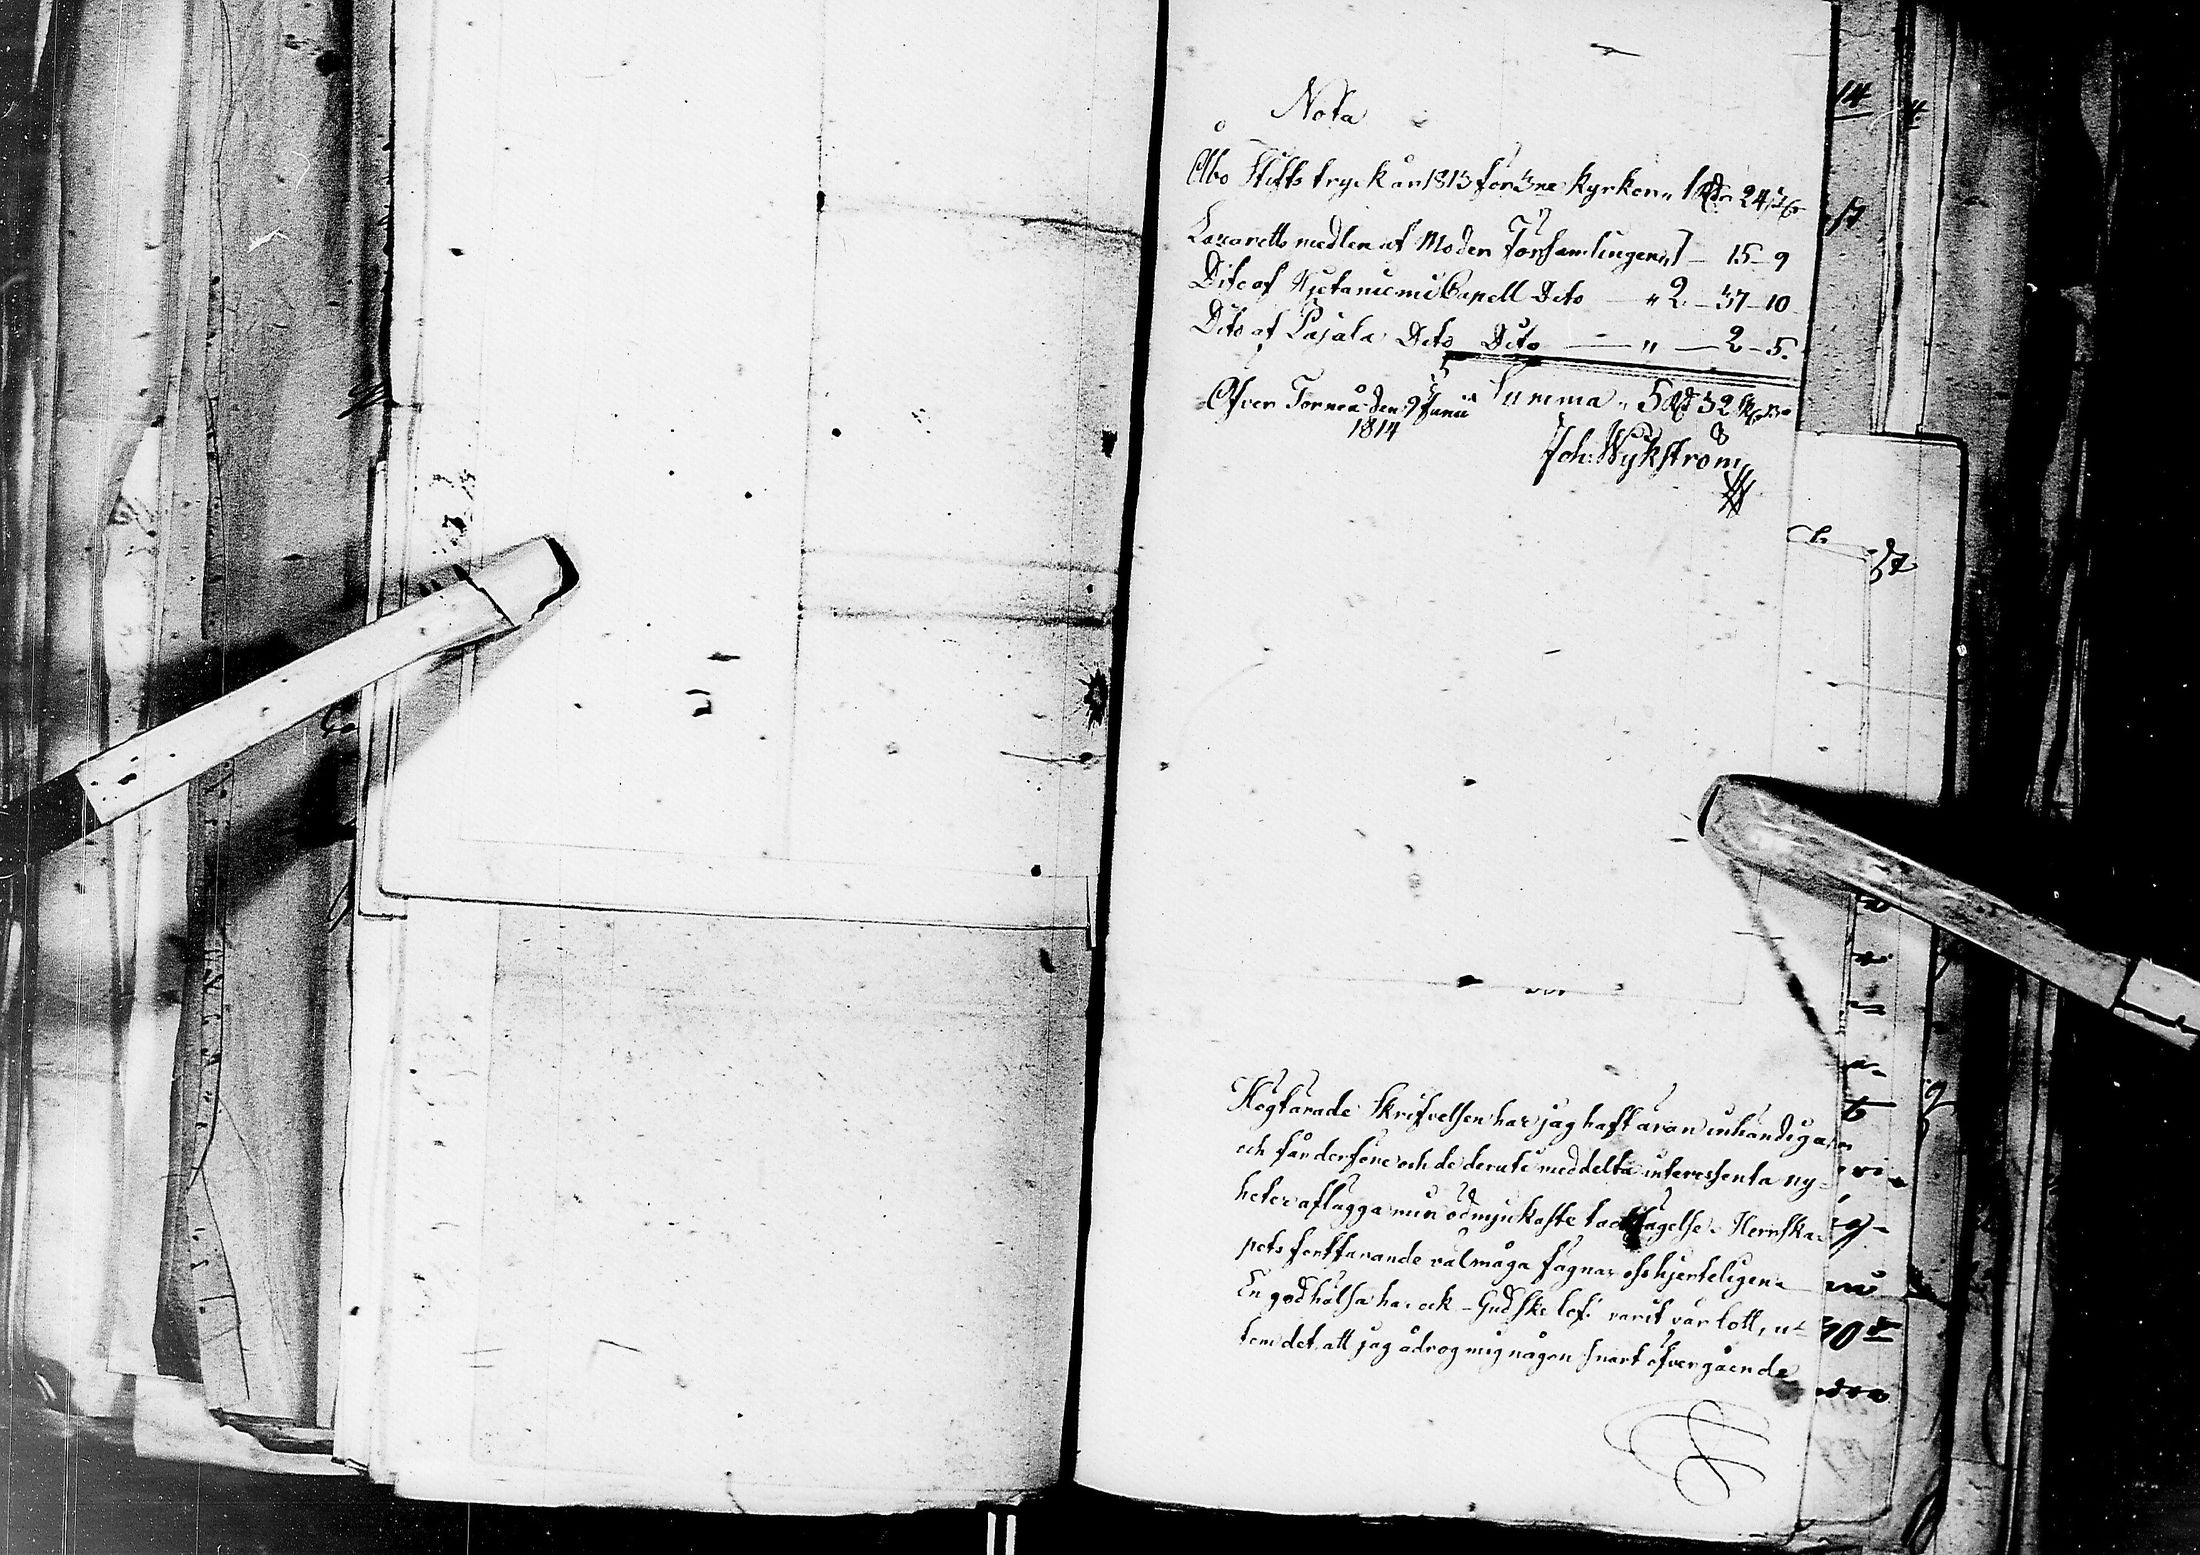 Nota
Åbo Stifts tryck år 1813 för 3ne Kyrkor „ 1 Rd 24 sk
Lazaretts medlen af Moder Församlingen „ 1 – 15 – 9
Dito af Hjetaniemi Capell Dito — „ 2 – 37 – 10
Dito af Pajala Dito Dito — „ — 2 – 5.
Summa „ 5 Rd 32 sk
Öfver Torneå den 9 Junii
1814
Joh: Wykström
Högtärade Skrifvelsen har jag haft äran inhändiga,
och får derföre och de deruti meddelta interessenta ny-
heter aflägga min ödmjukaste tacksägelse. Herrska-
pets fortfarande välmåga fägnar oss hjerteligen.
En god hälsa har ock – Gud ske lof! varit vår lott, u-
tom det, att jag ådrog mig någon snart öfvergående
14
57
30